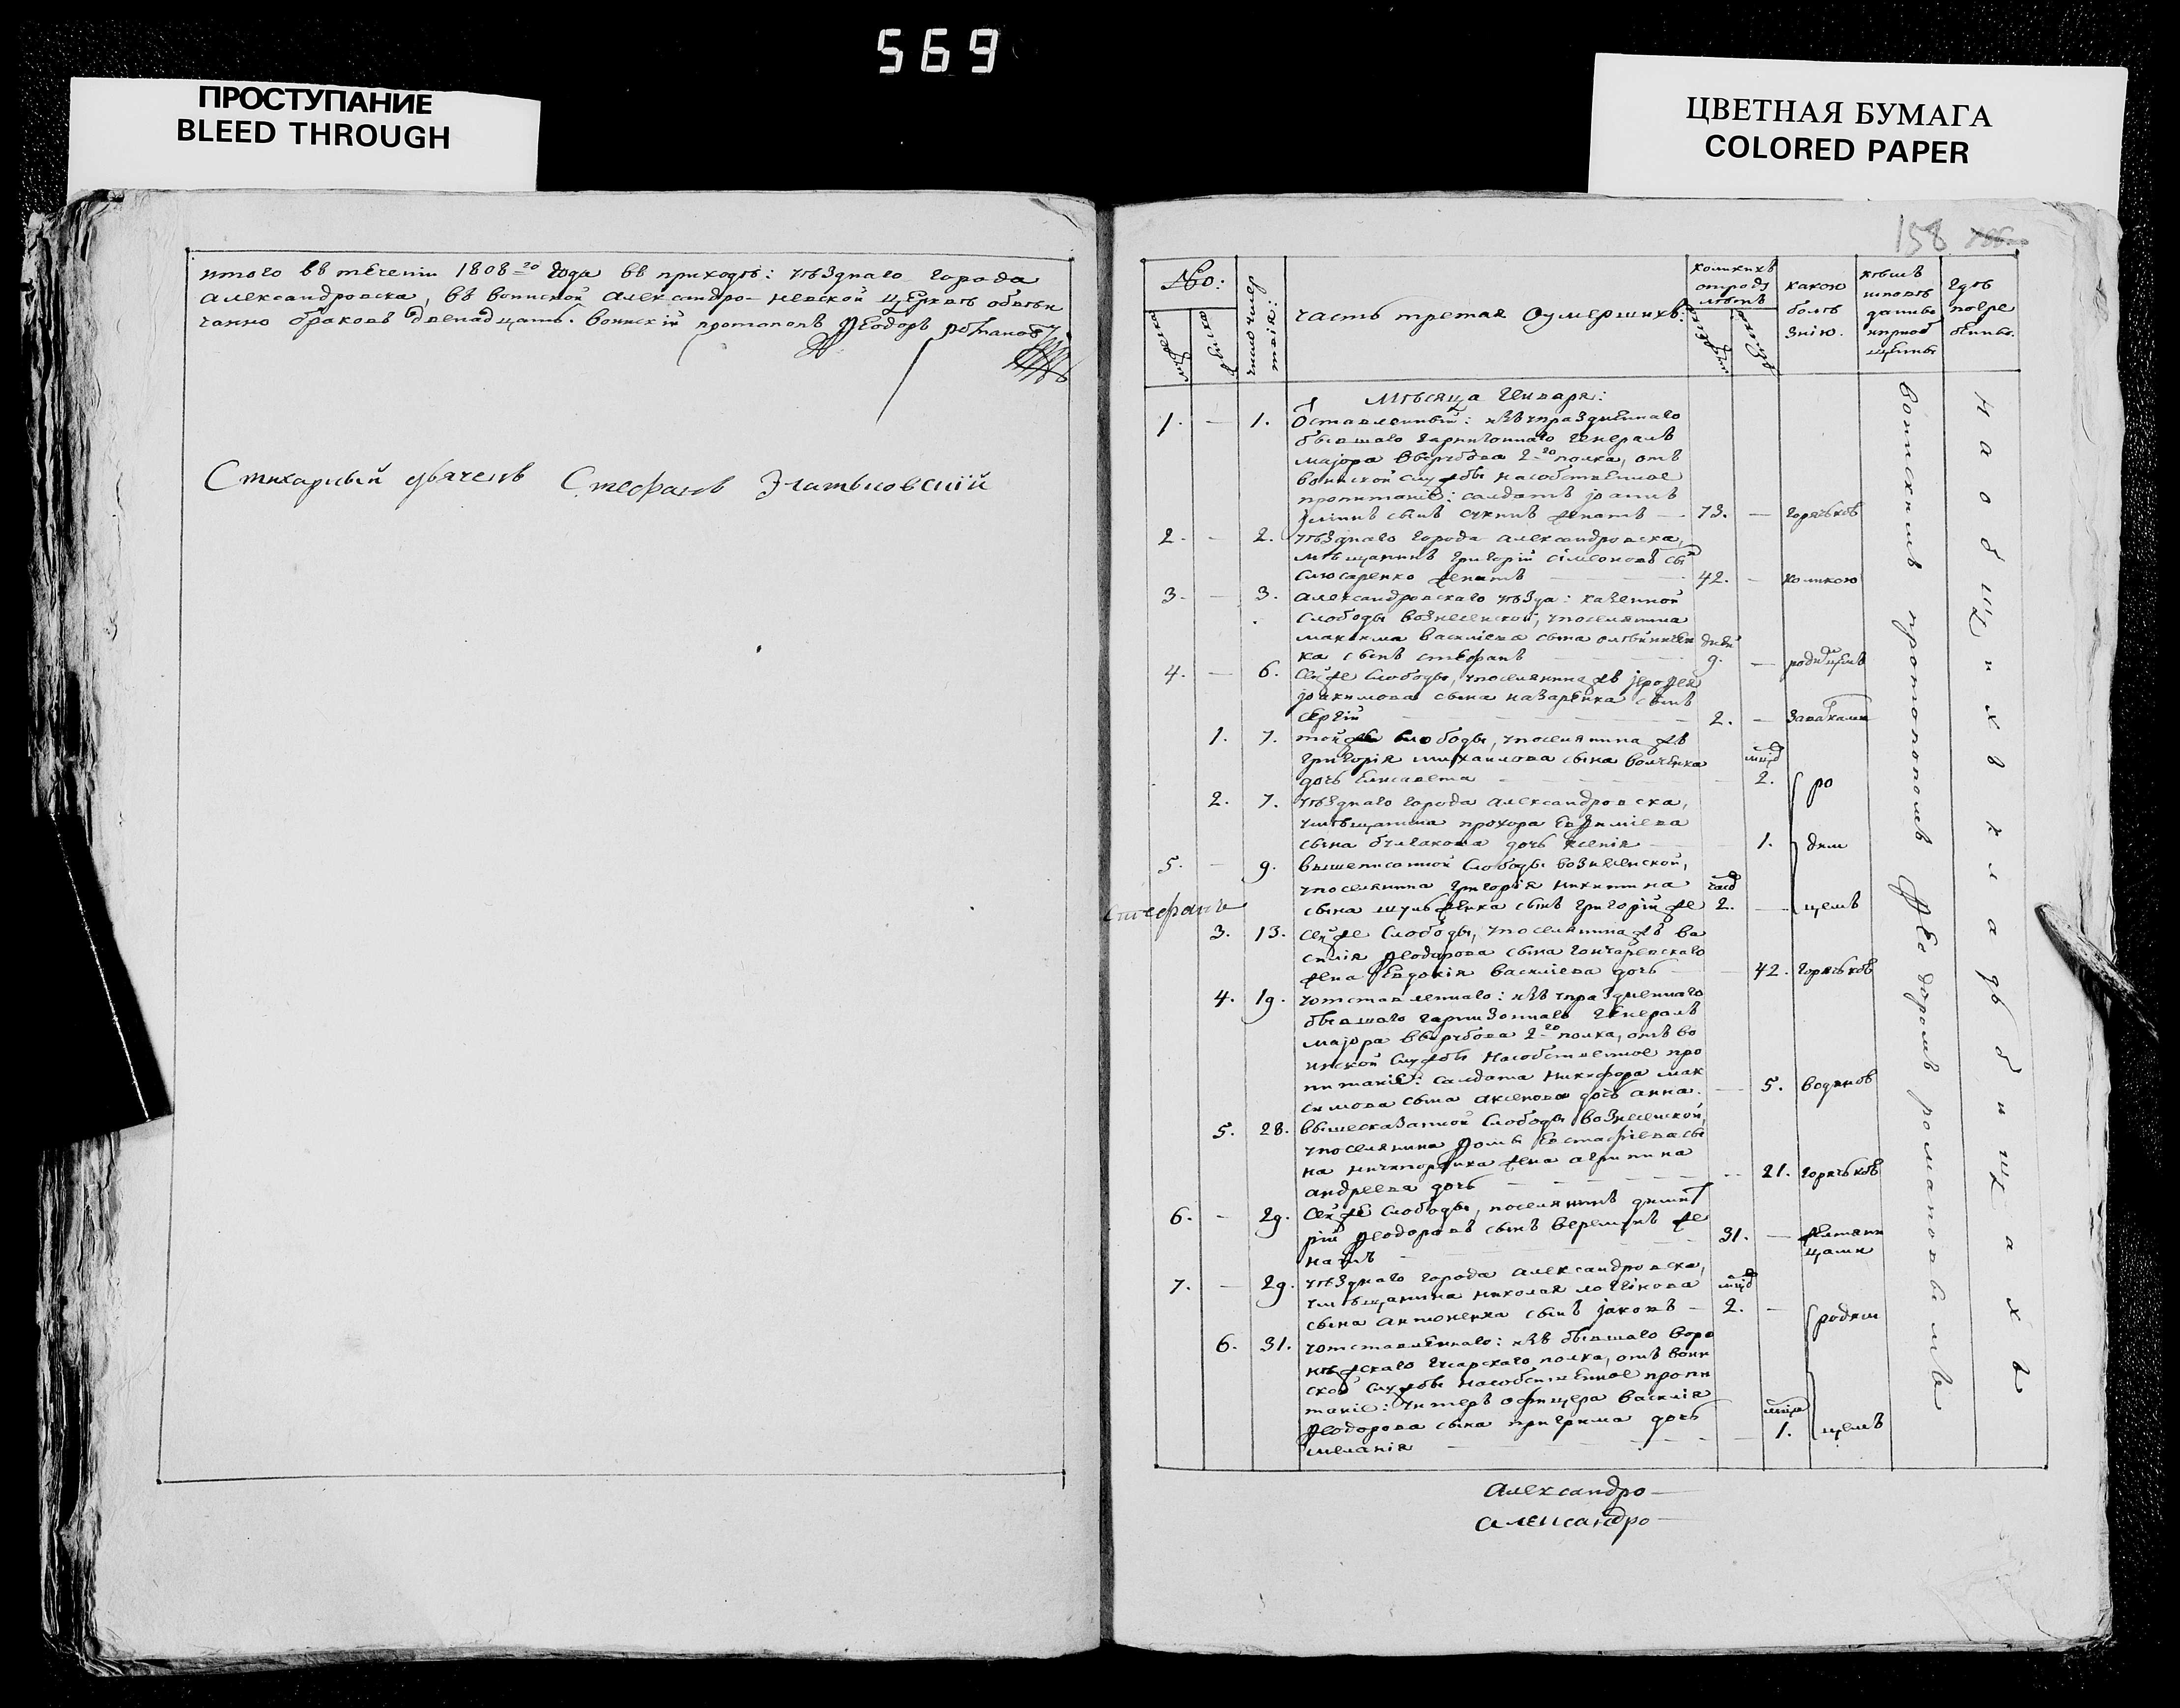 569
ПРОСТУПАНИЕ
BLEED THROUGH
ЦВЕТНАЯ БУМАГА
COLORED PAPER
итого въ теченіи 1808го года въ приходѣ: уѣзднаго города
александровска, въ воинской александро-невской церквѣ обвѣн
чанно браковъ двенадцать. воинскій протопопъ Ѳеодоръ романовъ
Стихарный дьячекъ Стефанъ
158
No: число умер часть третая о умершихъ: коликихъ отроду лѣтъ какою болѣзнію. кѣмъ исповѣданы и приобщены гдѣ погребены.
мужеска женска
Мѣсяца генваря:
1. — 1. Отставленный: изъ упраздненнаго
бывшаго гарнизоннаго генералъ
маіора 2го полка, отъ
воинской службы на собственное
пропитаніе: салдатъ іоаннъ
сынъ женатъ — 73. — горячкою
2. — 2. уѣзднаго города александровска,
мѣщанинъ григорій симеоновъ сынъ
слюсаренко женатъ — 42. — коликою
3. — 3. александровскаго уѣзда: казенной
слободы вознесенской, упоселянина
максима василіева сына дней
ка сынъ стефанъ 9. — родимцемъ
4. — 6. сей же слободы, упоселянина жъ іерофея
іоакимова сына назаренка сынъ
сергій 2. —
1. 7. той же слободы, упоселянина жъ
григорія михаилова сына волченка
дочь елисавета — 2. ро
2. 7. уѣзднаго города александровска,
умѣщанина прохора евфиміева
сына булгакова дочь ксенія — 1. дим
5. — 9. вышеписанной слободы вознесенской,
упоселянина григорія никитина
сына сынъ григорій же 2. — цемъ
Стефанъ
3. 13. сей же слободы, упоселянина жъ ва
силія Ѳеодорова сына гончаревскаго
жена евдокія василіева дочь — 42. горячкою
4. 19. уотставленнаго: изъ упраздненнаго
бывшаго гарнизоннаго генералъ
маіора 2го полка, отъ во
инской службы на собственное про
питаніе: салдата никифора мак
симова сына аксенова дочь анна. — 5. водяною
5. 28. вышесказанной слободы вознесенской,
упоселянина Ѳомы евстафіева сы
на жена агрипина
андреева дочь — 21. горячкою
6. — 29. сей же слободы, поселянинъ димит
рій Ѳеодоровъ сынъ же
натъ — 31. —
7. — 29. уѣзднаго города александровска,
умѣщанина николая
сына антоненка сынъ іаковъ — 2. — родим
6. 31. уотставленнаго: изъ бывшаго воро
нѣжскаго гусарскаго полка, отъ воин
ской службы на собственное пропи
таніе: унтеръ офицера василія
Ѳеодорова сына дочь
меланія — 1. цемъ
воинскимъ протопопомъ Ѳеодоромъ романовымъ
на общихъ кладбищахъ
александро-
александро-